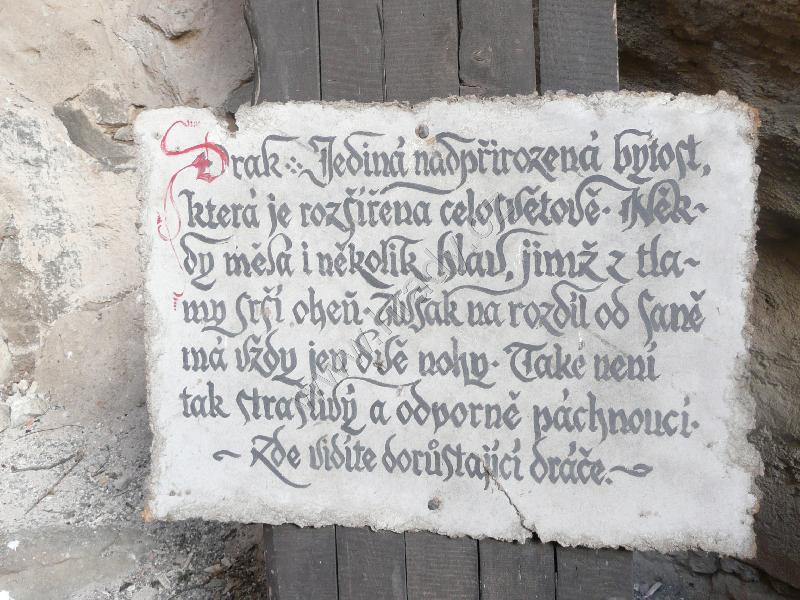 Drak : Jediná nadpřirozená bytost,
která je rozšířena celosvětově. Něk-
dy měla i několik hlav, jimž z tla-
my srší oheň. Avšak na rozdíl od saně
má vždy jen dvě nohy. Také není
tak strašlivý a odporně páchnoucí.
~ Zde vidíte dorůstající dráče. ~